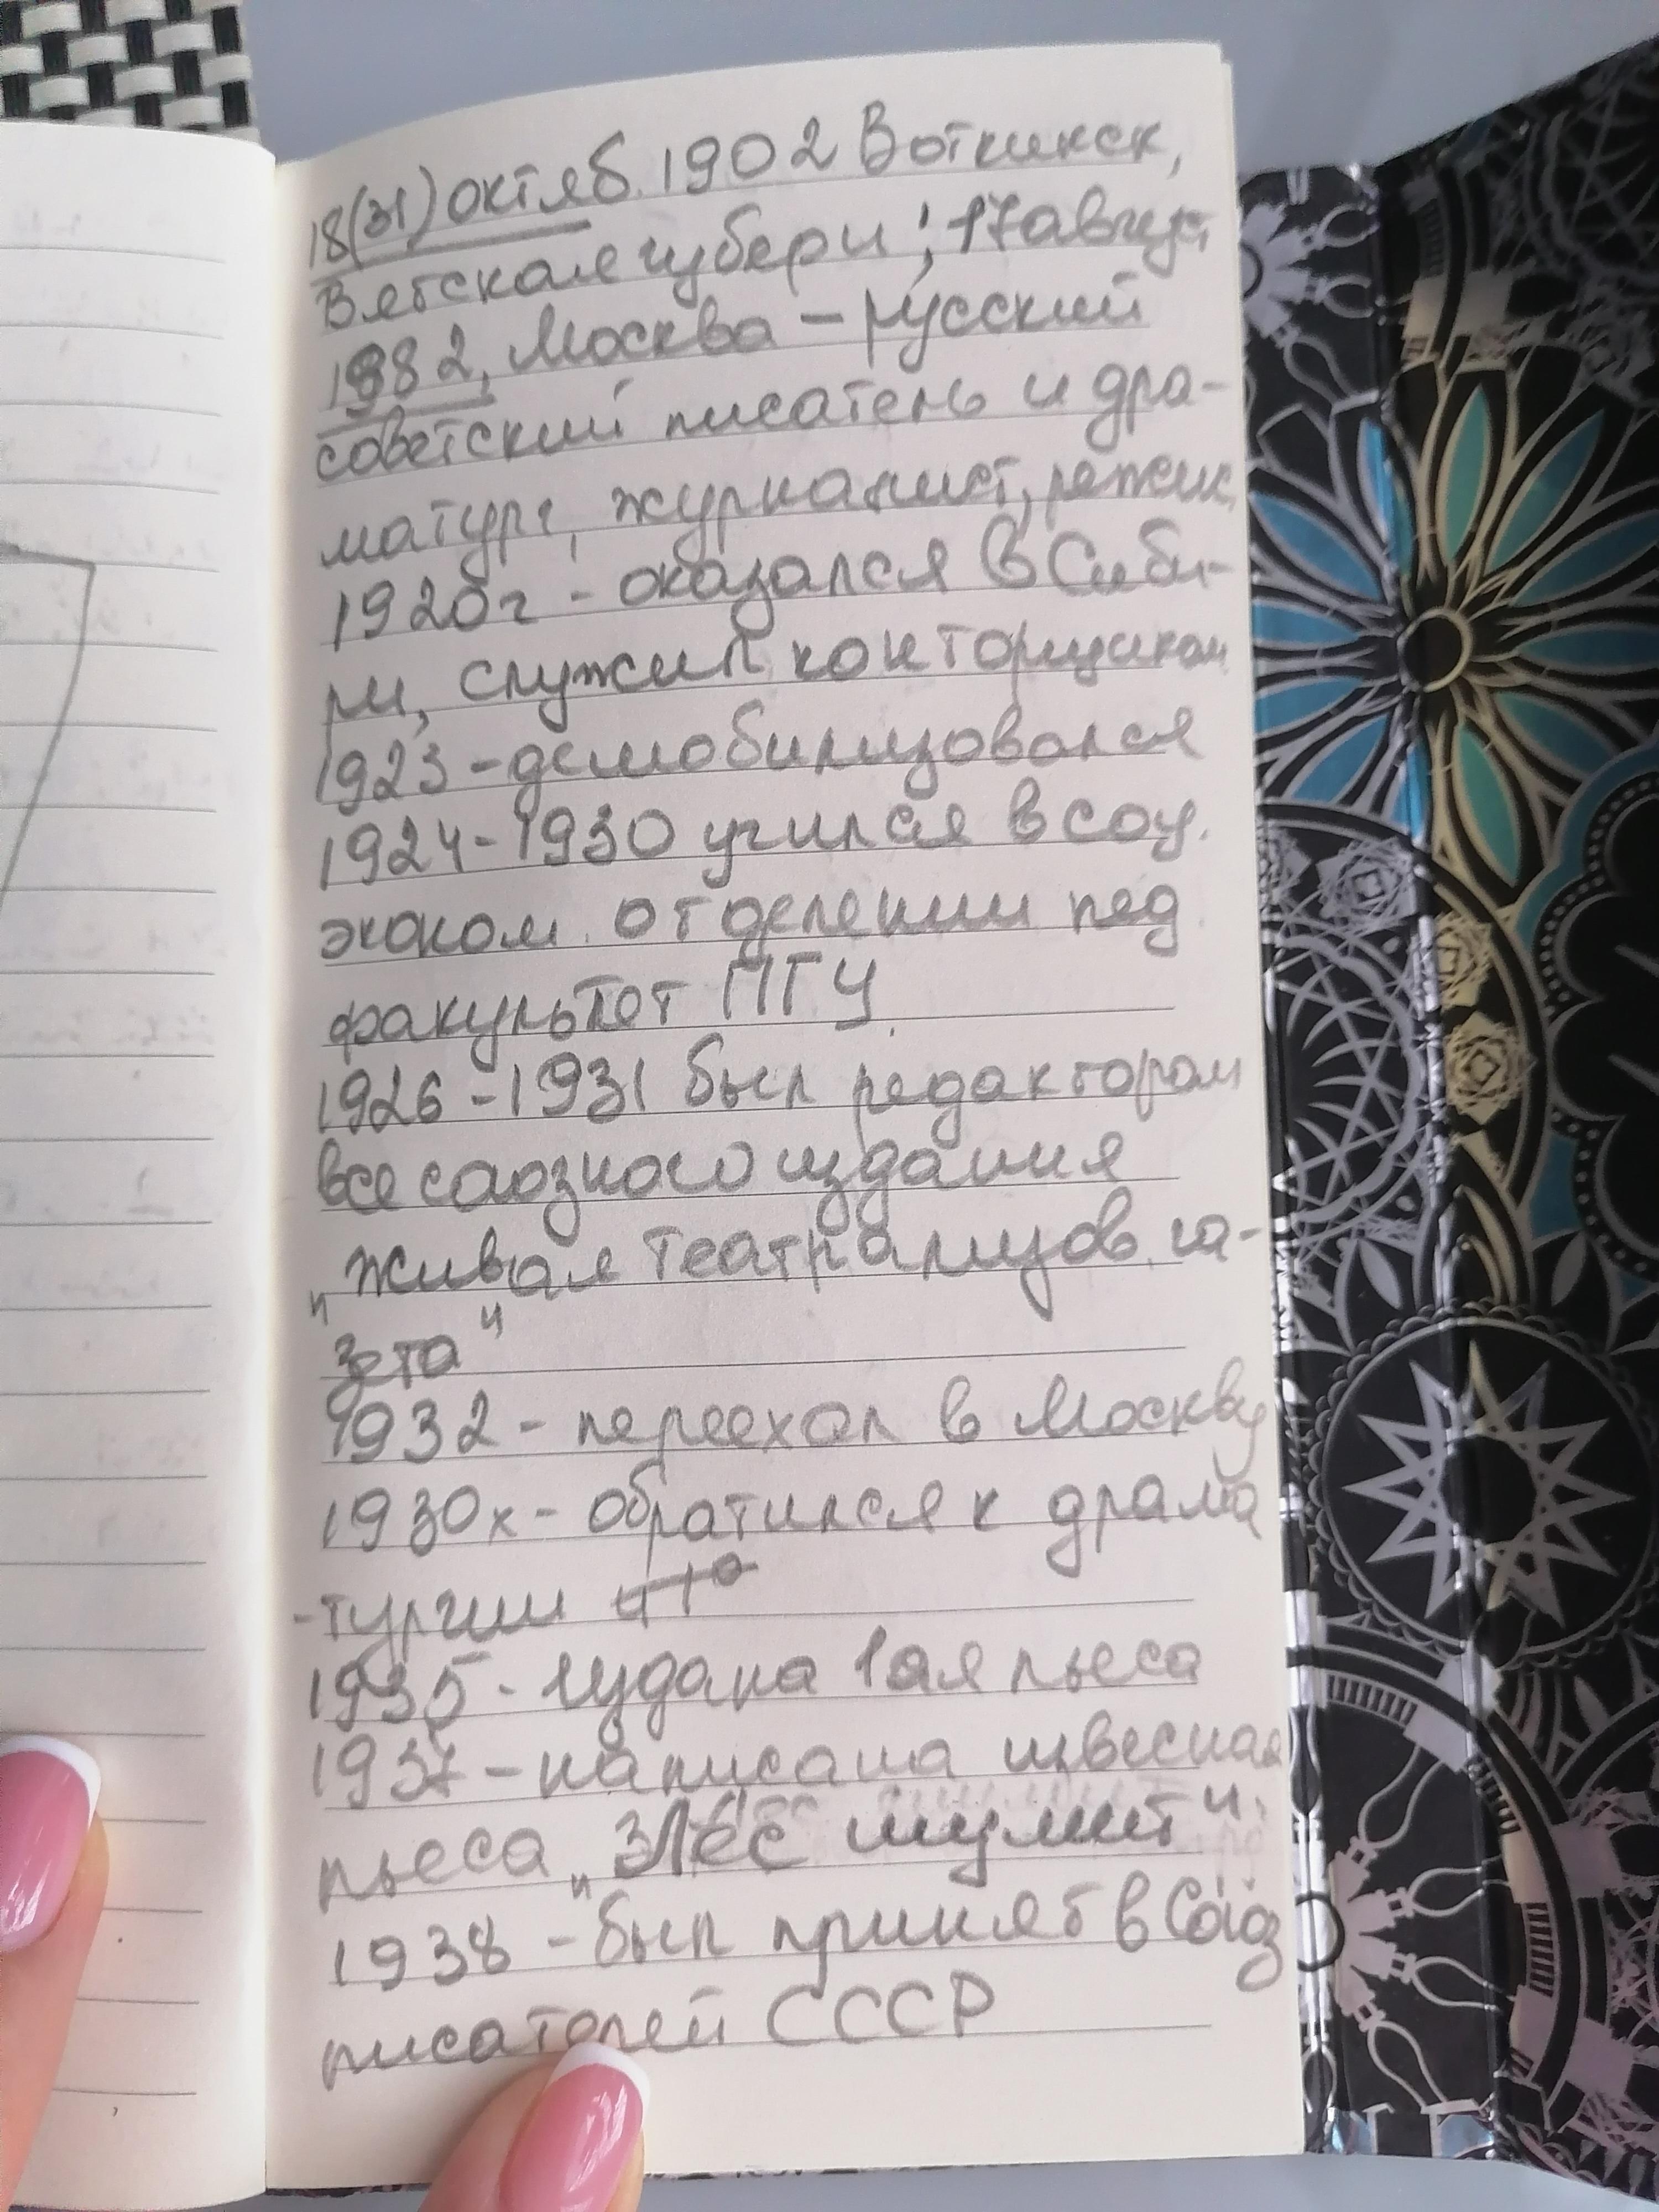 18(31) октяб. 1902 Воткинск,
Вятская губерн; 17 август
1982, Москва – русский
советский писатель и дра-
матург, журналист, режис
1920г - оказался в Сиби-
ри, служил конторщиком
1923 - демобилизовался
1924-1930 учился в соц.
эконом. отделении пед
факультет ПГУ.
1926-1931 был редактором
все союзного издания
„Живая театрализов. га-
зета"
1932 - переехал в Москву
1930х - обратился к драма
-тургии
1935 - издана 1ая пьеса
1937 - написана извесная
пьеса „ Лес шумит"
1938 - был принят в Союз
писателей СССР